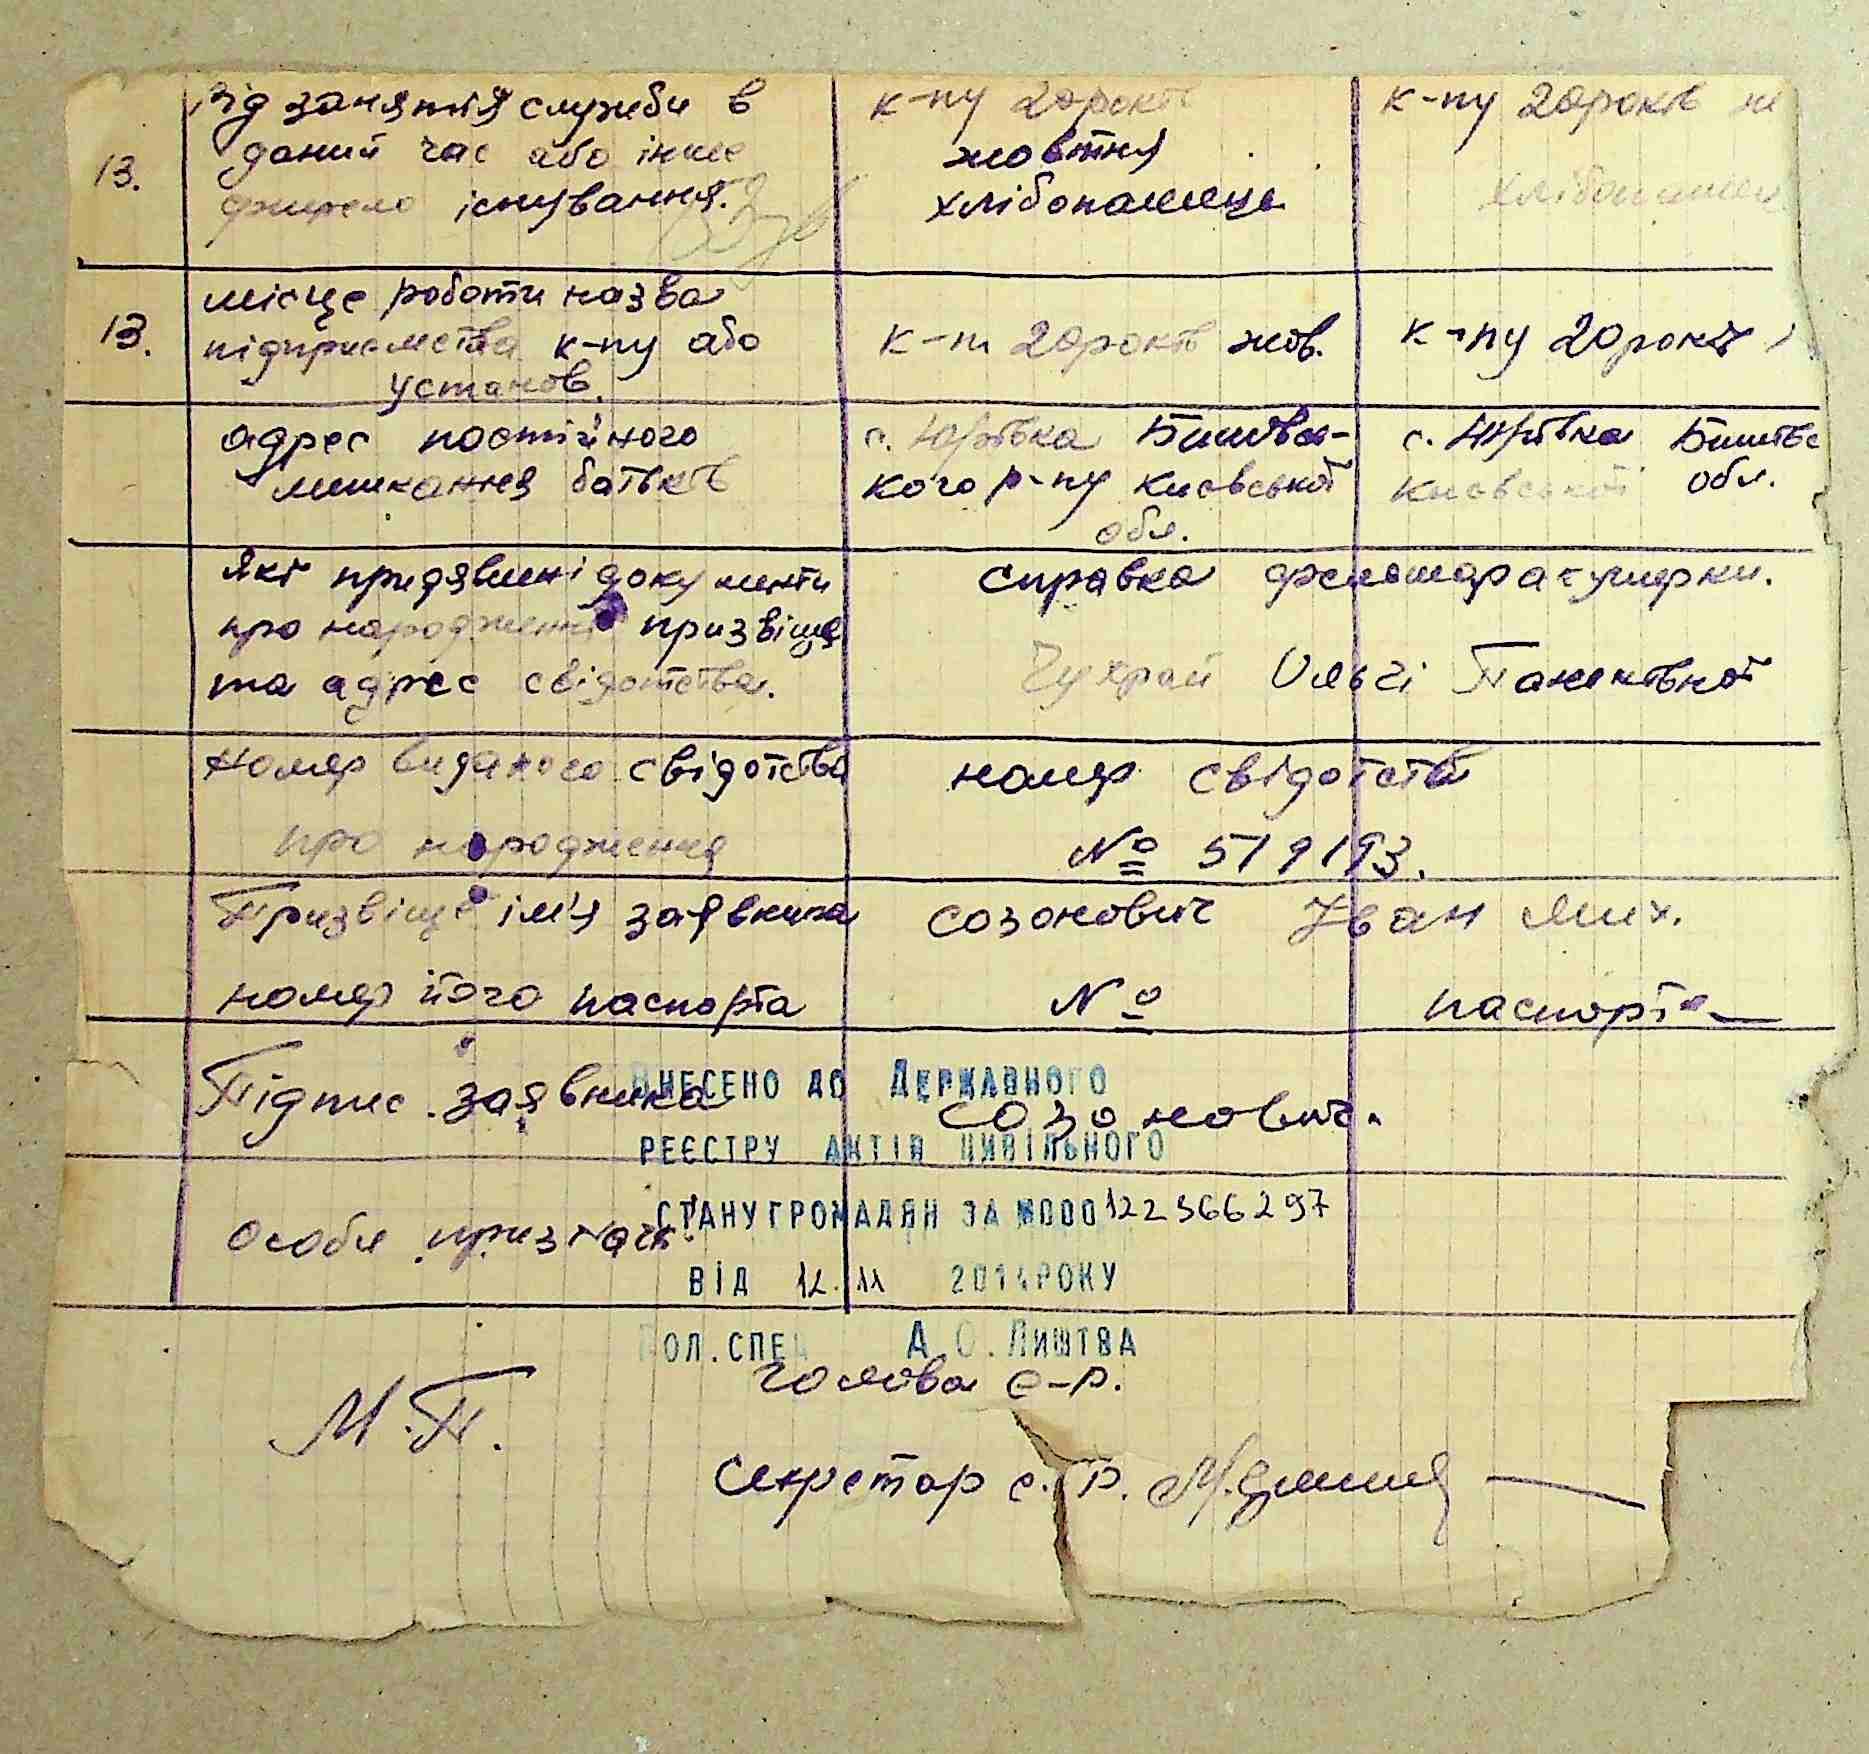 13.
Від заняття служби в
даний час або інше
джерело існування.
к-пу 20 років
жовтня
хлібопашець
к-пу 20 років
хлібопашець
13.
місце роботи назва
підприємства к-пу або
установ.
к-п 20 років жов.
к-пу 20 років
адрес постійного
мешкання батьків
с. Юрівка Бишівсь-
кого р-ну Києвської
обл.
с. Юрівка Бишівс
Києвської обл.
які придявлені документи
про народження призвіще
та адрес свідотства.
справка фельшаракушерки.
Чухрай Ользі
номер виданого свідотства
про народження
номер свідотств
№ 519193.
Призвіще ім'я заявника
номер його паспорта
Созонович Іван Мих.
№ паспорта
Підпис заявника
Созонович.
ВНЕСЕНО ДО ДЕРЖАВНОГО
РЕЄСТРУ АКТІВ ЦИВІЛЬНОГО
СТАНУ ГРОМАДЯН ЗА №000122366297
ВІД 12.11 2014 РОКУ
ГОЛ. СПЕЦ А.О. ЛИШТВА
Особи признач.
М.П.
Голова с-р.
Секретар с. Р.